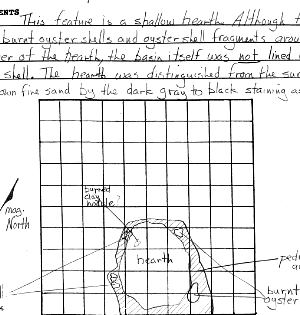 ENTS
This feature is a shallow hearth. Although t
burnt oyster shells and oyster shell fragments arou
er of the hearth, the basin itself was not lined
shell. The hearth was distinguished from the sur
own fine sand by the dark gray to black staining as
burned
clay
nodule?
mag.
North
hearth
ped
a
burnt
oyster